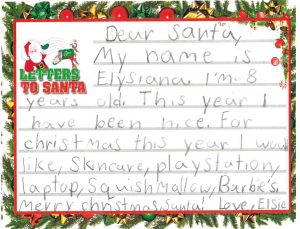 Dear Santa,
My name is
LETTERS
TO SANTA
Elysiana I'm 8
years old. This year I
have been nice. For
christmas this year I would
like, Skincare, playstation,
laptop, Squishmallow, Barbie's.
merry christmas, Santa! Love, Elsie